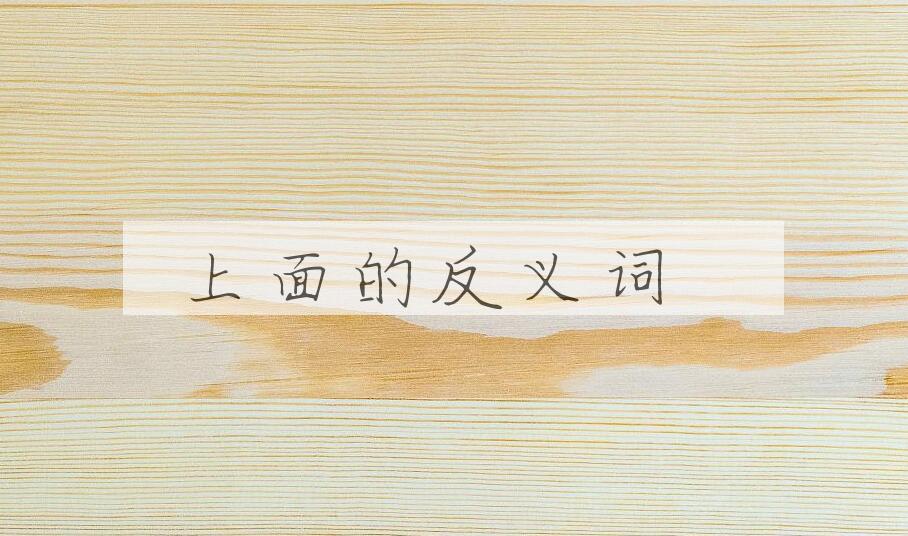 上面的反义词